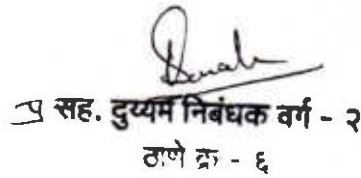 प्र सह. दुय्यम निबंधक वर्ग - २
ठाणे क्र - ६